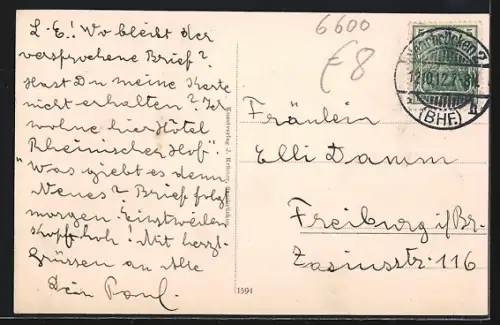 L. E.! Wo bleibt der
versprochene Brief?
Hast Du meine Karte
nicht erhalten? Ich
wohne hier Hôtel
"Rheinischer Hof".
Was giebt es denn
Neues? Brief folgt
morgen. Einstweilen
Kopf hoch! Mit herzl.
Grüssen an Alle
Dein Paul.
6600
€8
Saarbrücken 2
12.10.12.7-8N
(BHF.)
b
Fräulein
Elli Damm
Freiburg i/Br.
Zasiusstr. 116
Kunstverlag J.
1594